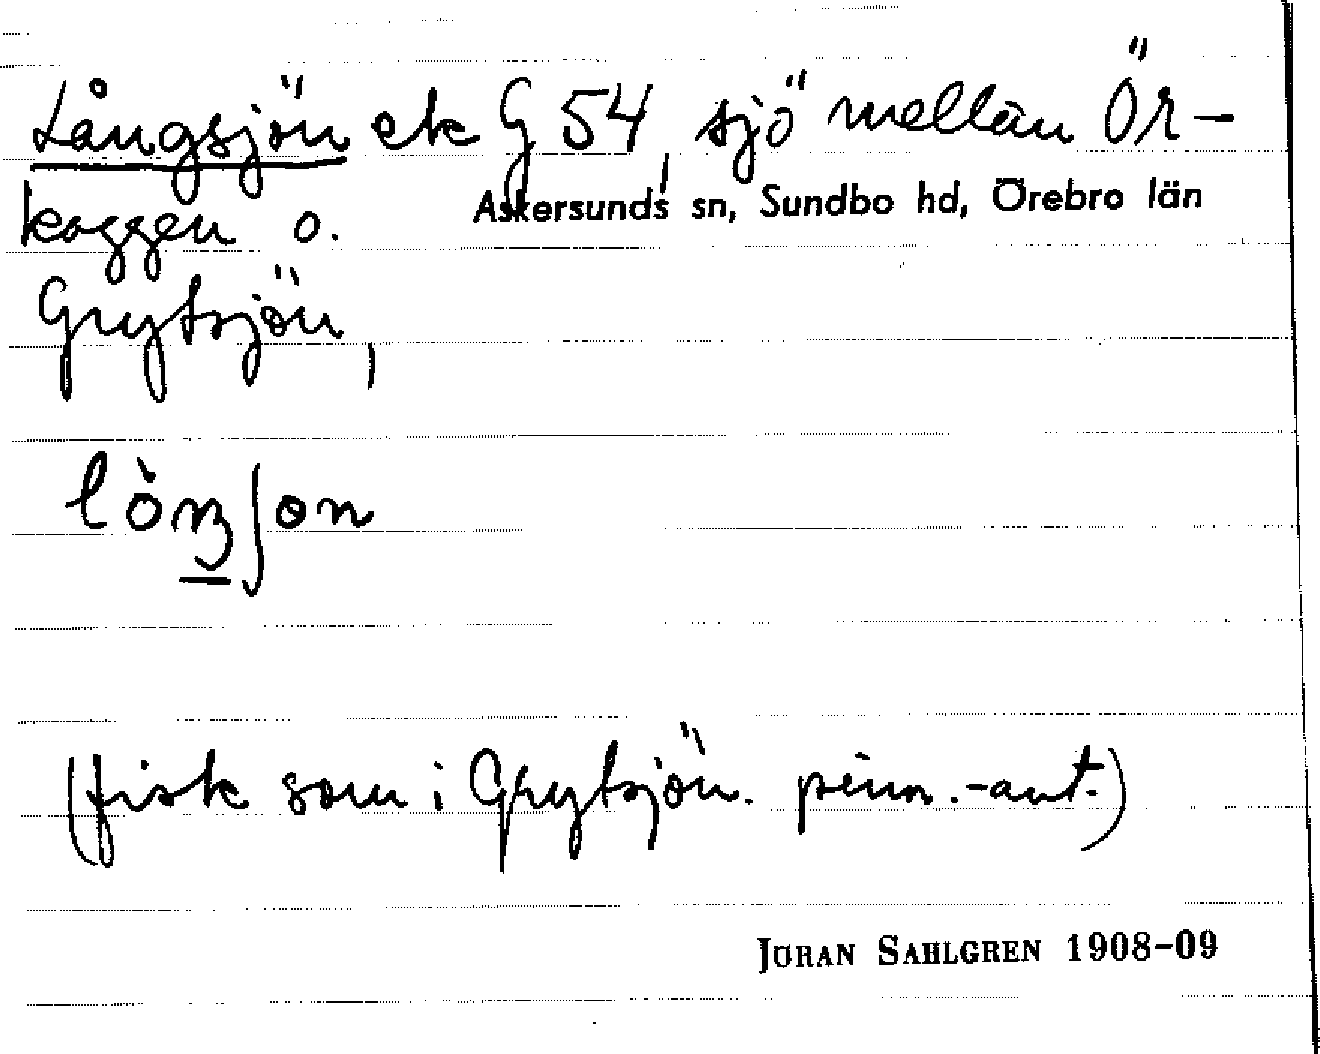 Långsjön ek G 54, sjö mellan Ör-
Askersunds sn, Sundbo hd, Örebro län
kaggen o.
Grytsjön,
(fisk som i Grytsjön. pinn.-ant.)
JÖRAN SAHLGREN 1908-09